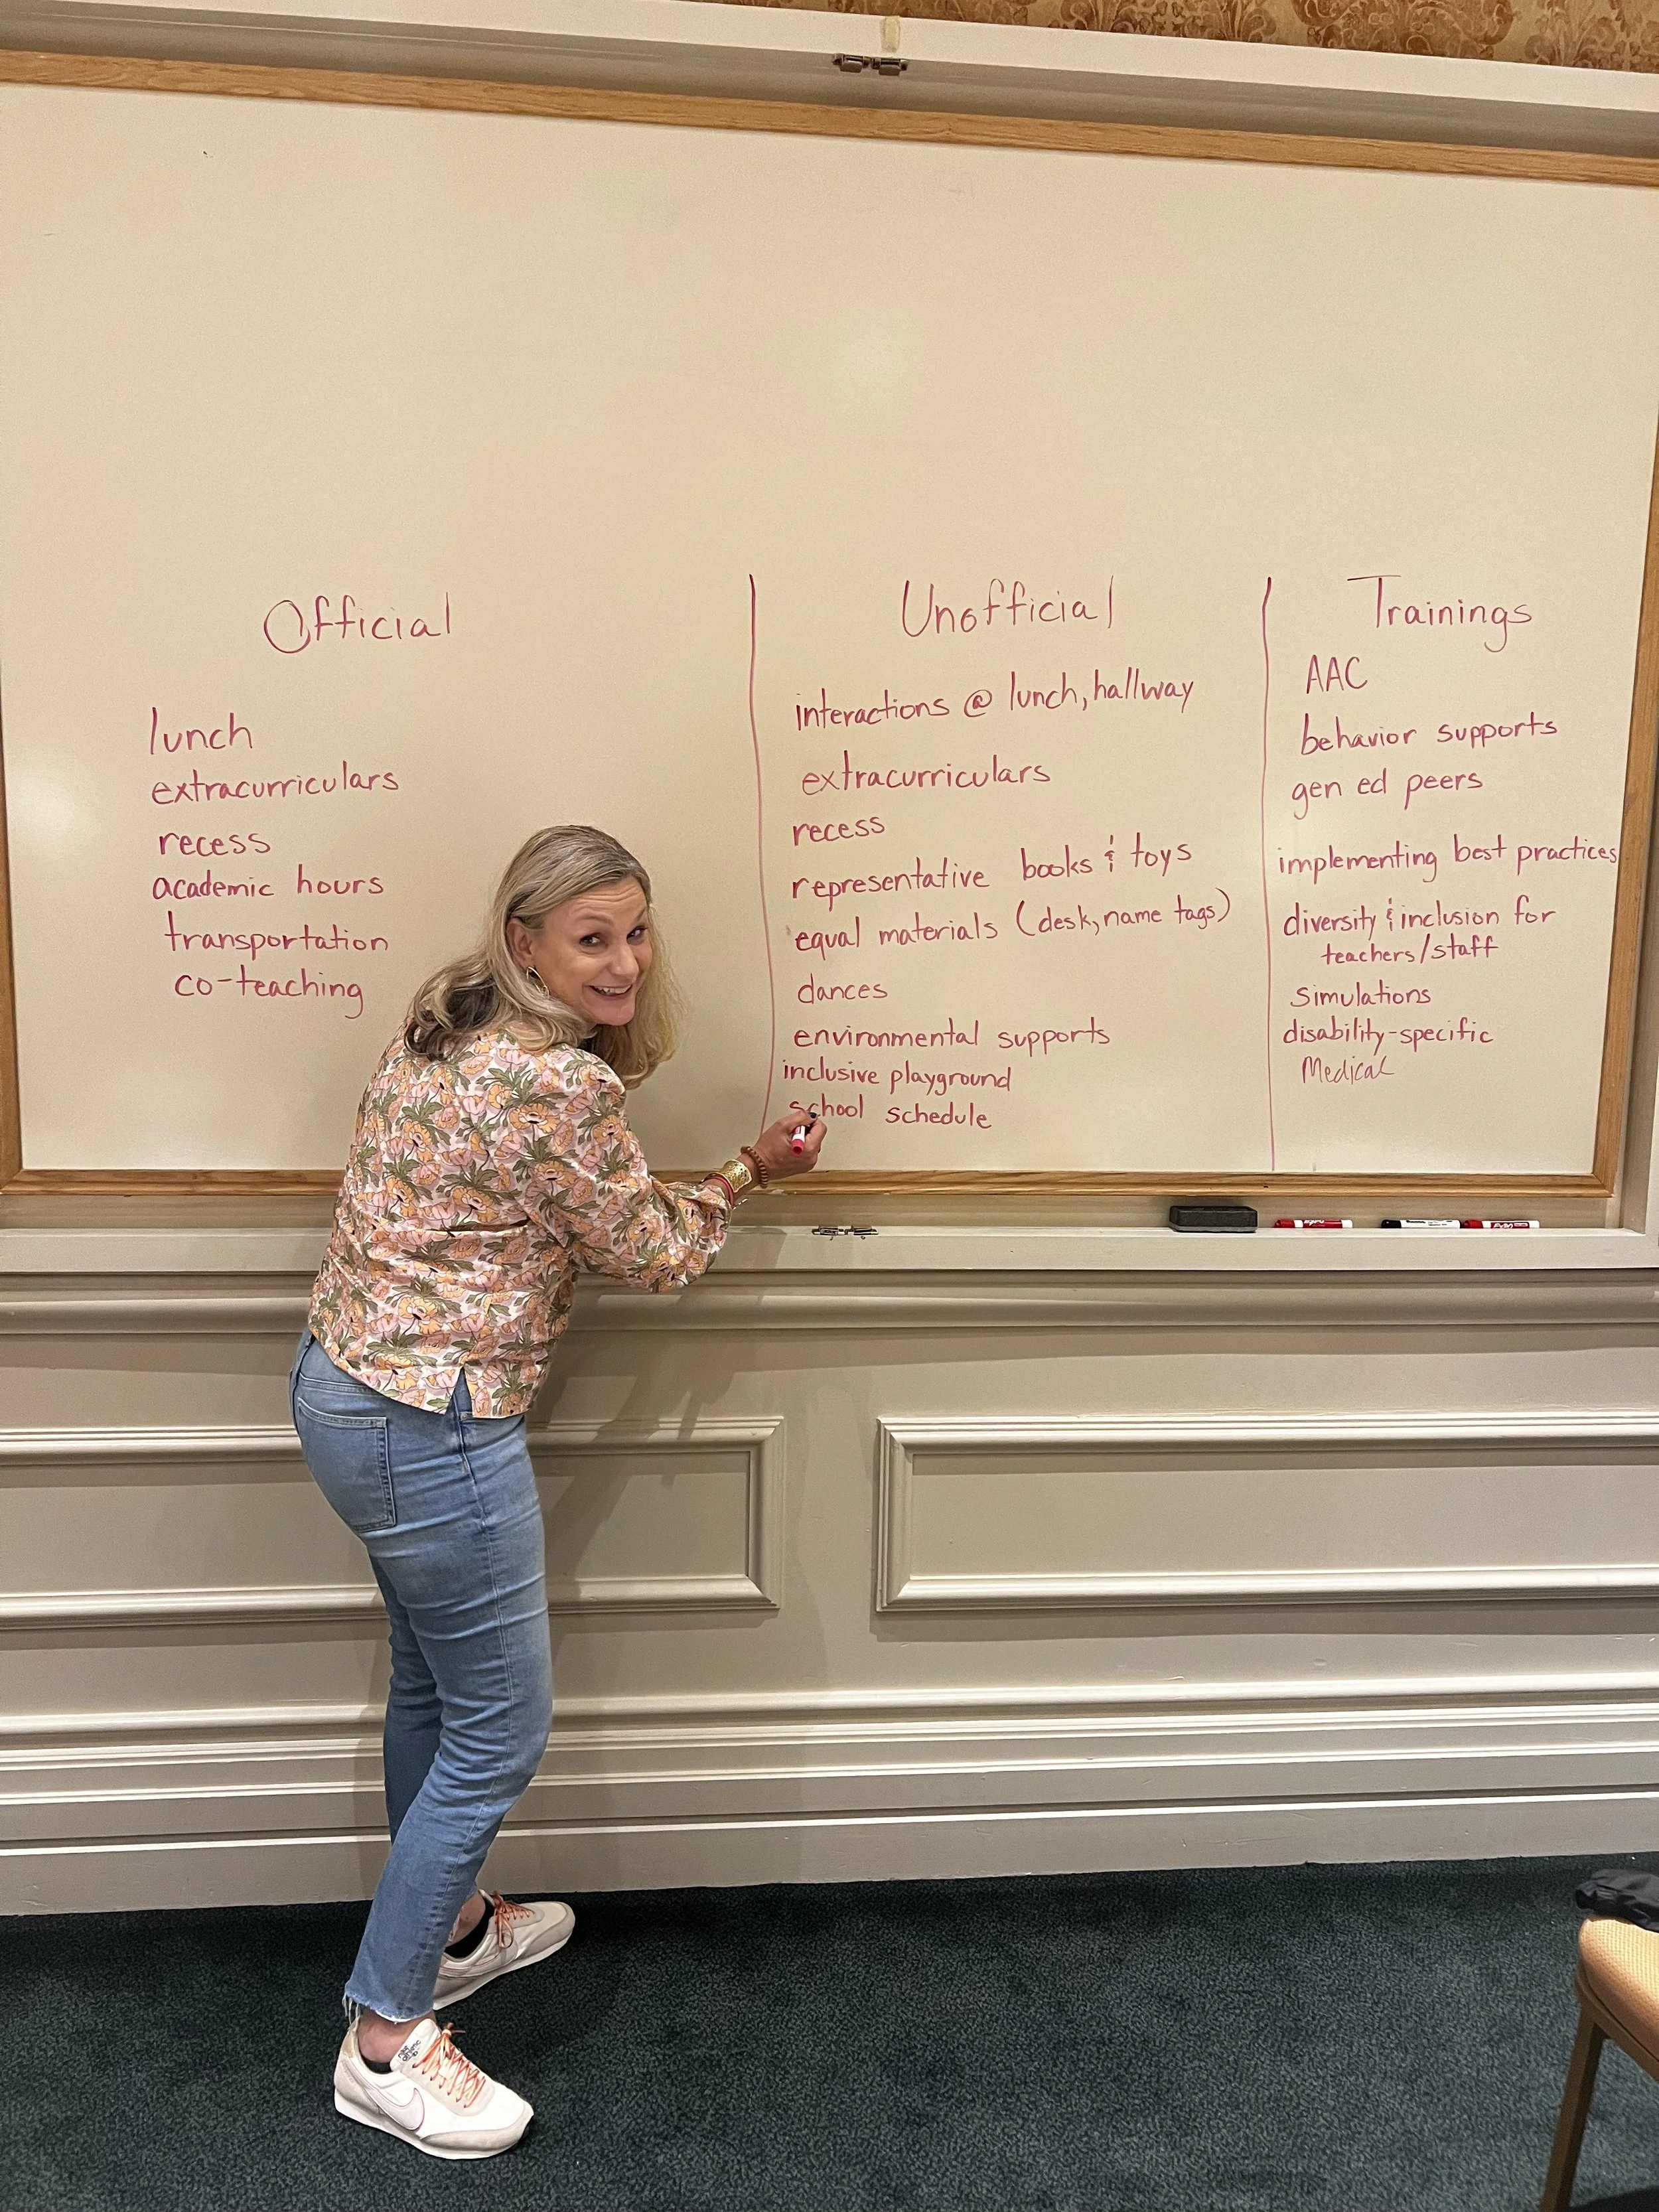 Official
lunch
extracurriculars
recess
academic hours
transportation
co-teaching
Unofficial
interactions @ lunch, hallway
extracurriculars
recess
representative books & toys
equal materials (desk, name tags)
dances
environmental supports
inclusive playground
school schedule
Trainings
AAC
behavior supports
gen ed peers
implementing best practices
diversity & inclusion for
teachers/staff
simulations
disability-specific
Medical